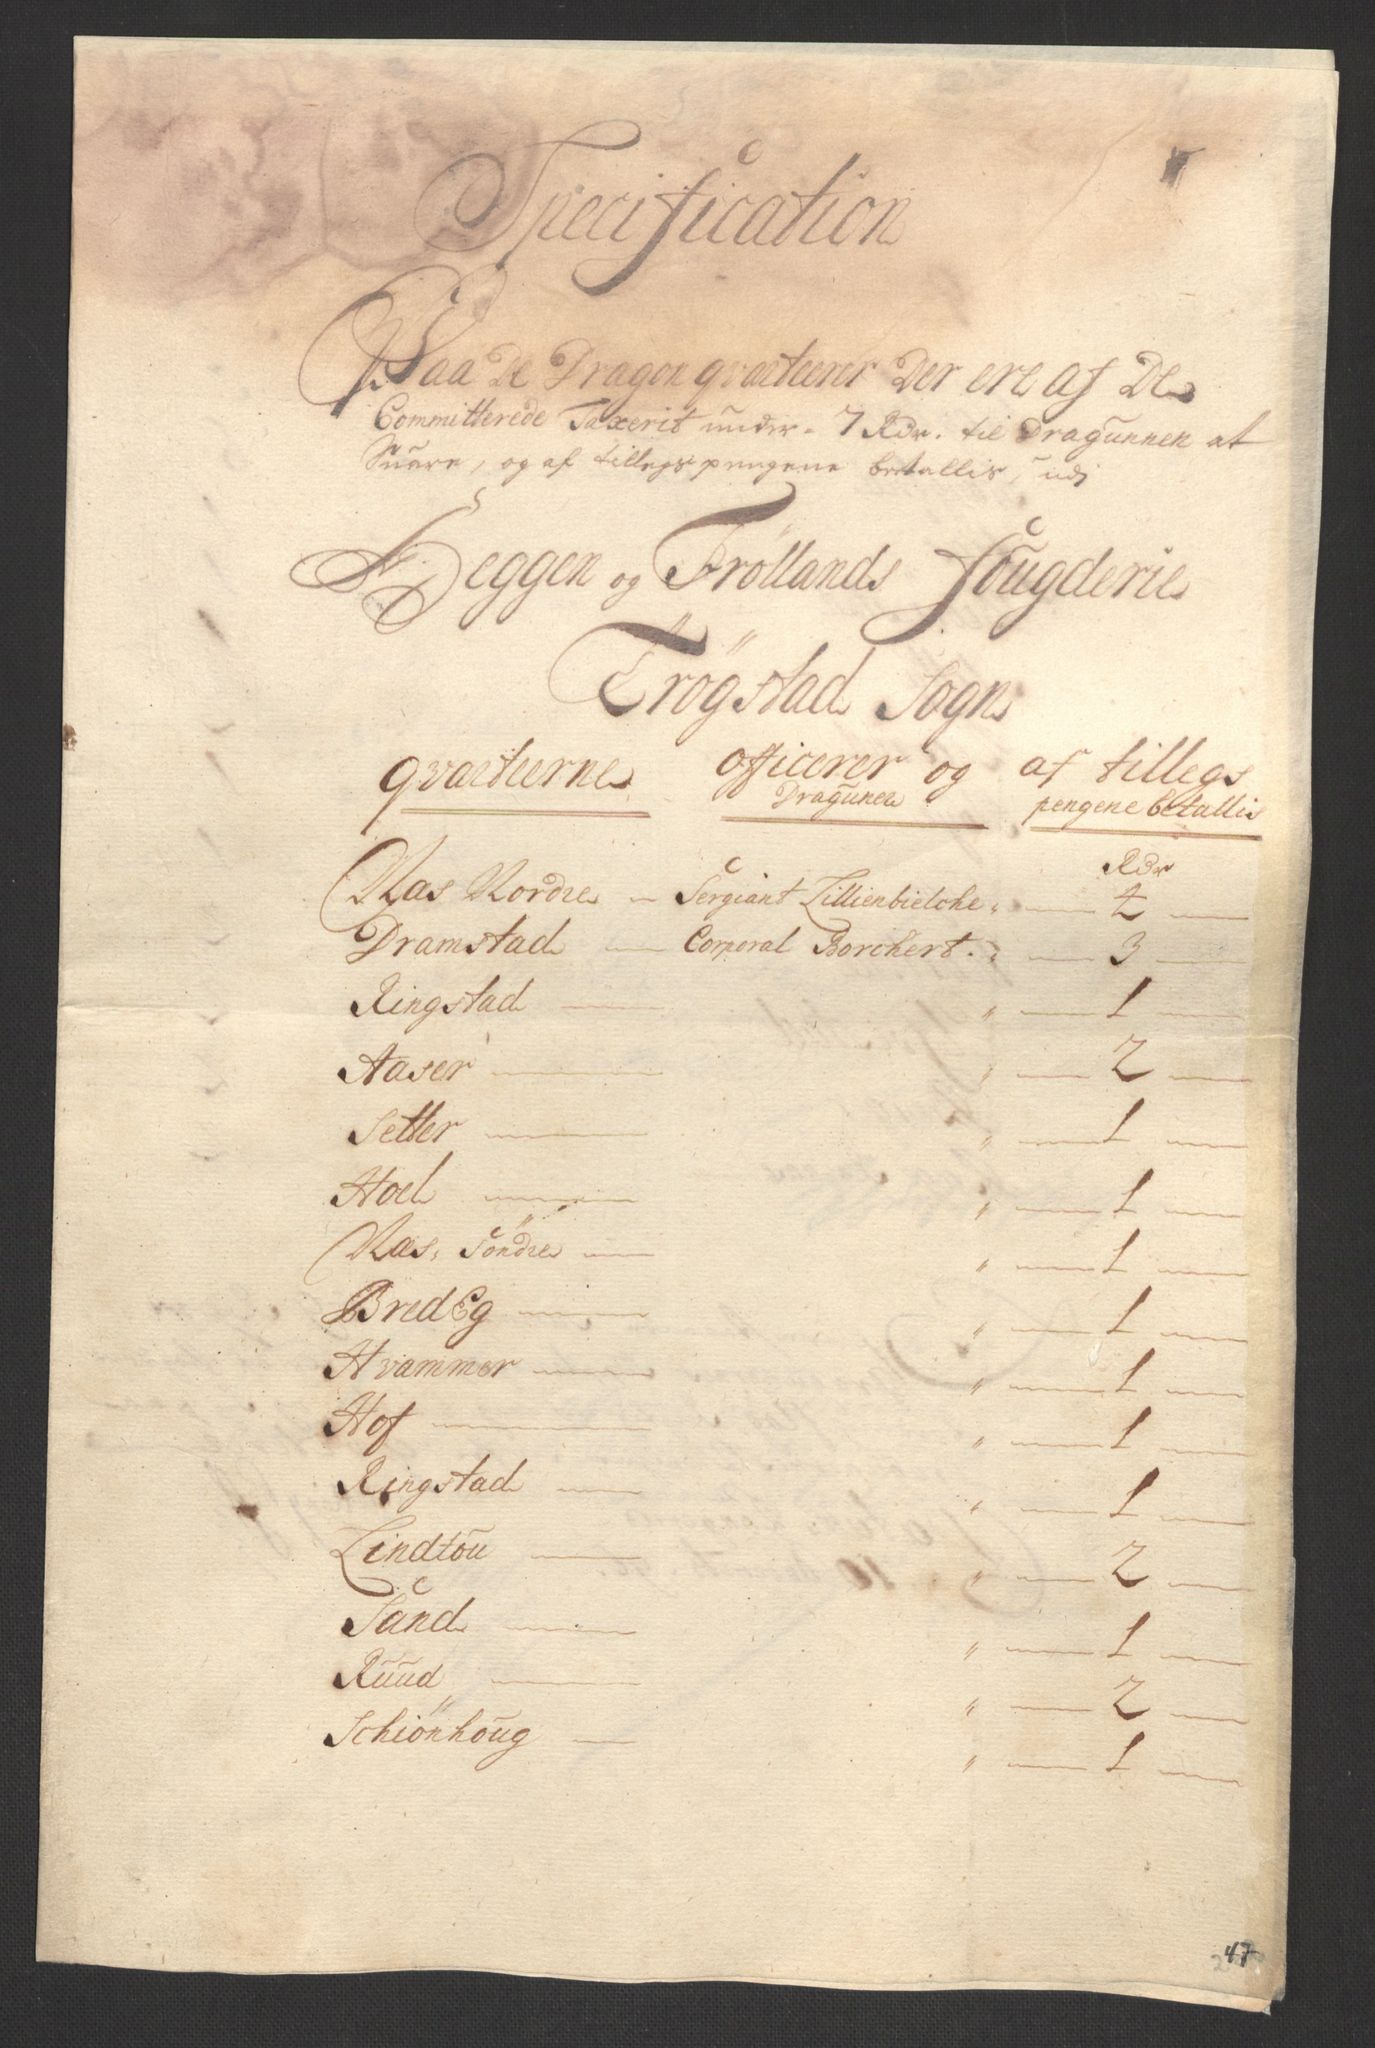 Specification
Paa De Dragon qvarteerer Der ere af De
Committerede Taxerit under 7 Rdr. til Dragunnen at
Suare, og af tillegs pengene betallis, udi
Heggen og Fröllands fougderie
Trögstad Sogn
qvarteerne officerer og af tillegs
Dragunerne pengene betallis
Rdr
Raes Nordre Sergiant Lillienbielche " 2
Dramstad Corporal Borchert. " 3
Ringstad " 1
Aaser " 2
Setter " 1
Hoel " 1
Raes, Söndre " 1
BredEg " 1
Hvammer " 1
Hof " 1
Ringstad " 1
Lindtou " 2
Sand " 1
Ruud " 2
Schiönhoug " 1
47